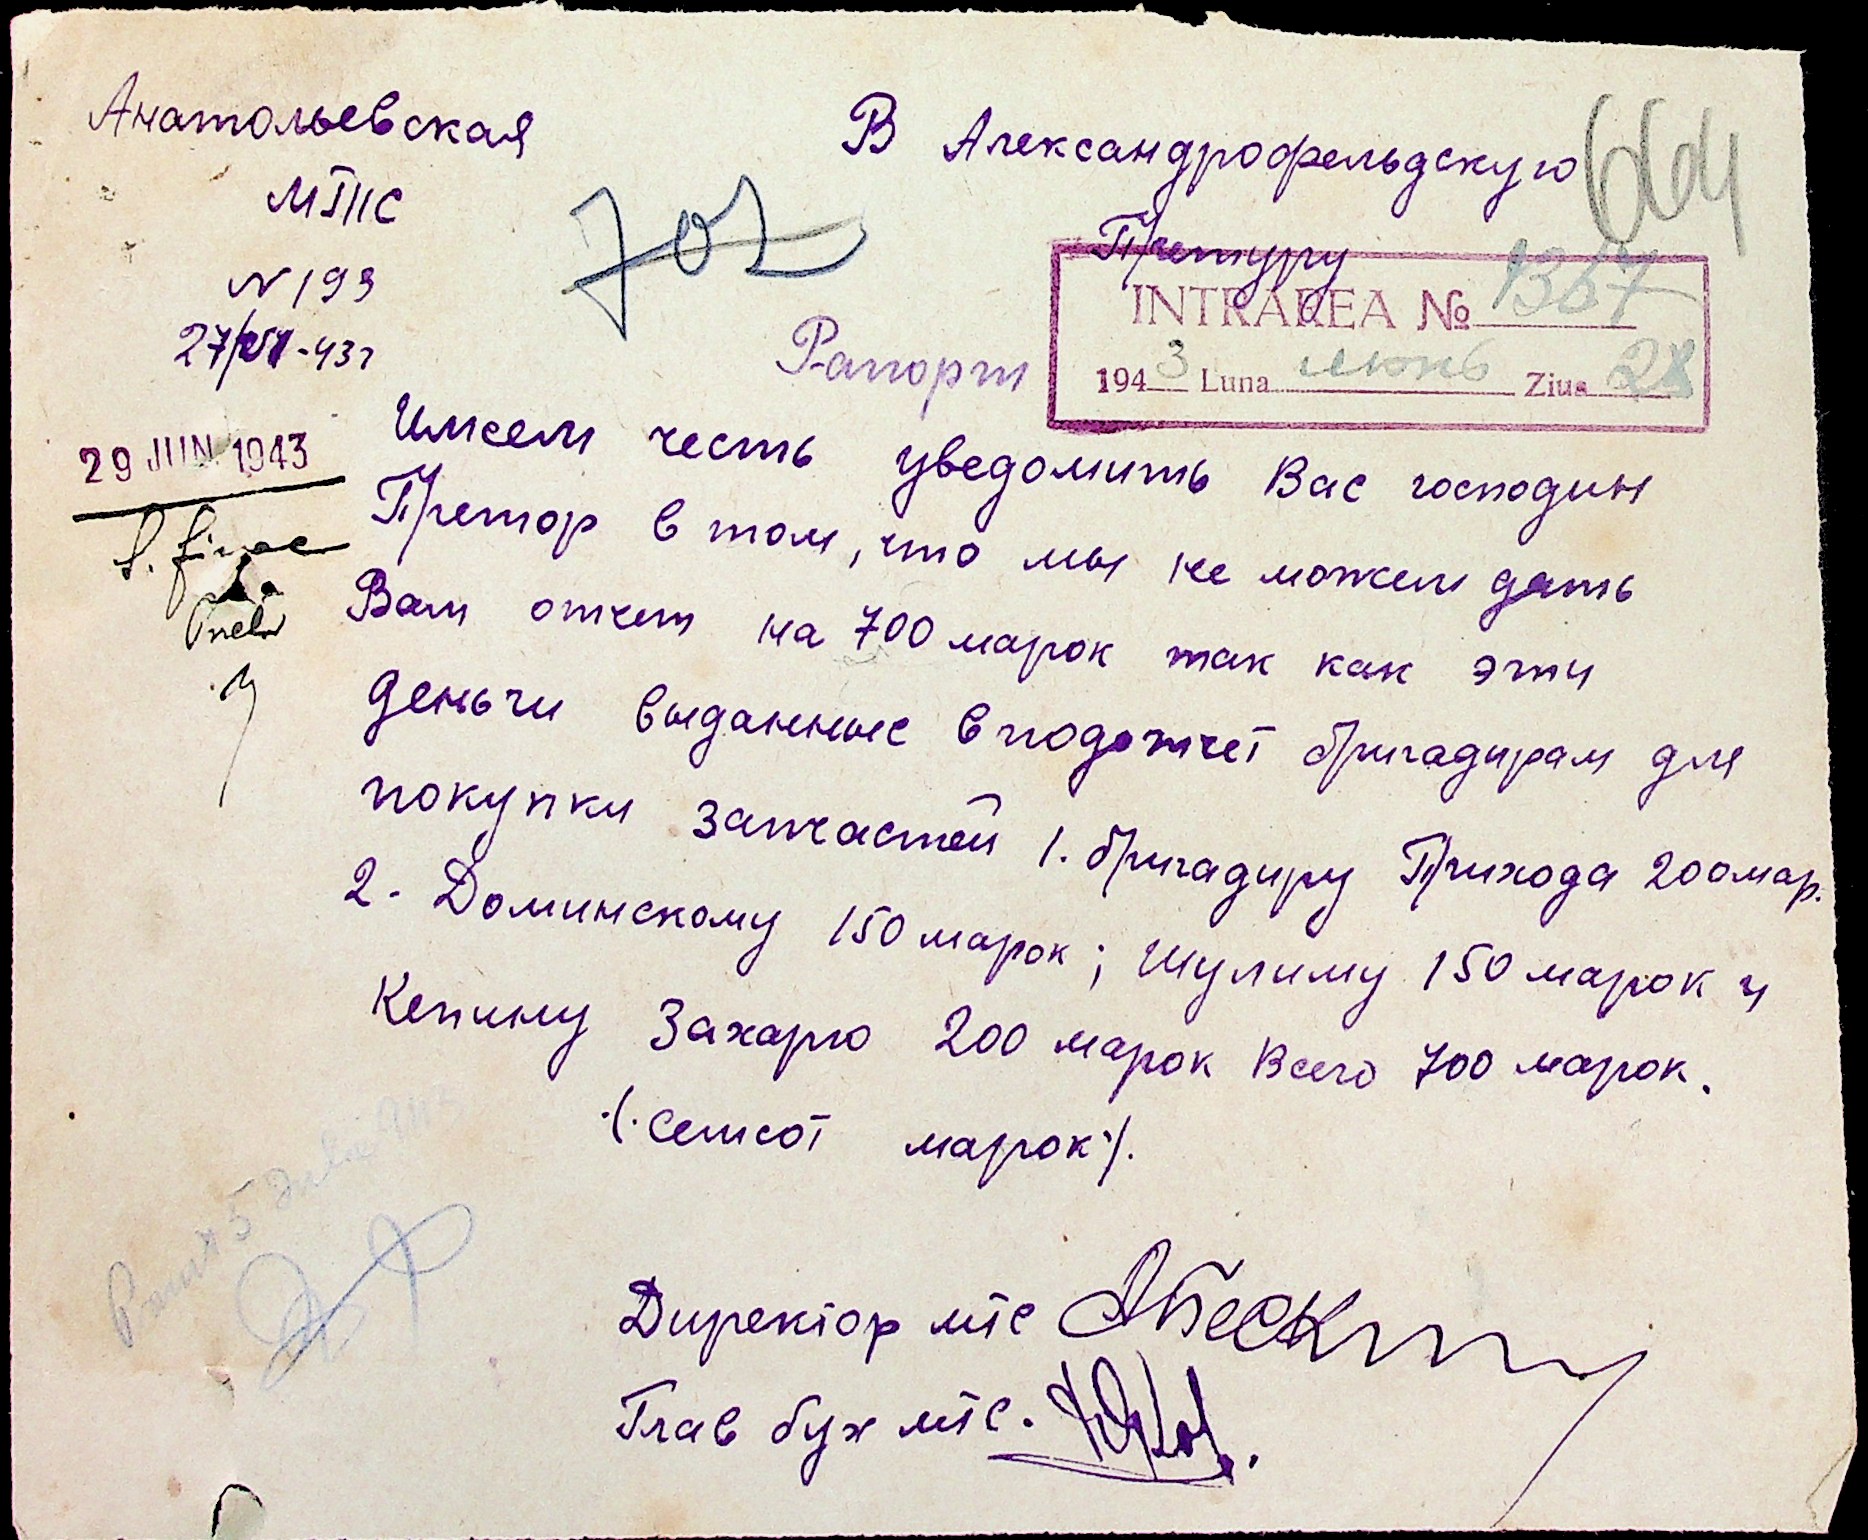 Анатольевская
МТС
N 193
27/VI-43г
В Александрофельдскую
Претуру
664
702
INTRAREA № 1367
1943 Luna июнь Ziua 28
Рапорт
29 JUN. 1943
Имеем честь уведомить Вас господин
Претор в том, что мы не можем дать
Вам отчет на 700 марок так как эти
деньги выданные в подотчет бригадирам для
покупки запчастей 1. бригадиру Прихода 200 мар.
2. Доминскому 150 марок; Шулиму 150 марок и
Кепину Захарю 200 марок Всего 700 марок.
·/.Семсот марок·/.
Директор мтс
Глав бух мтс.